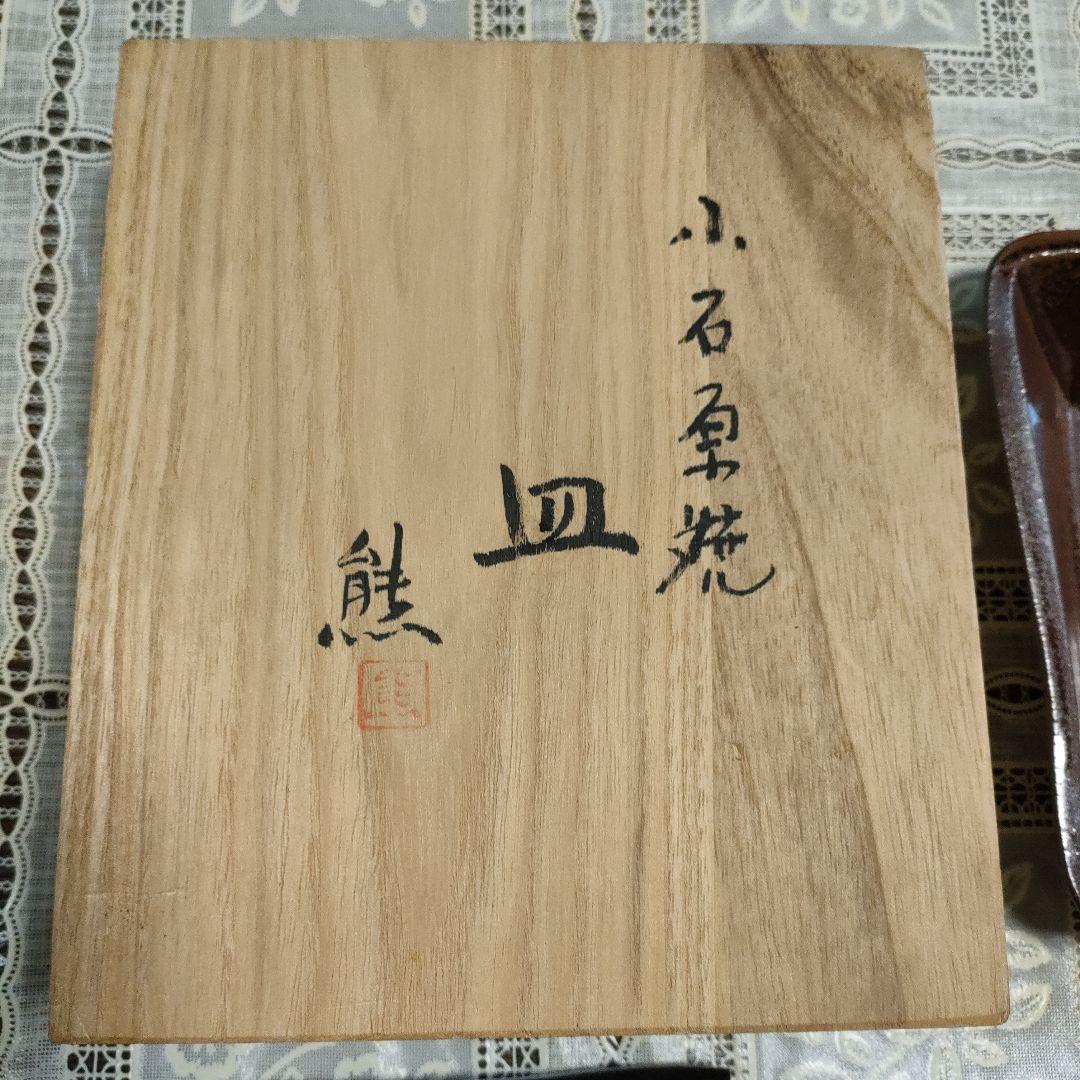 小石原焼
皿
熊